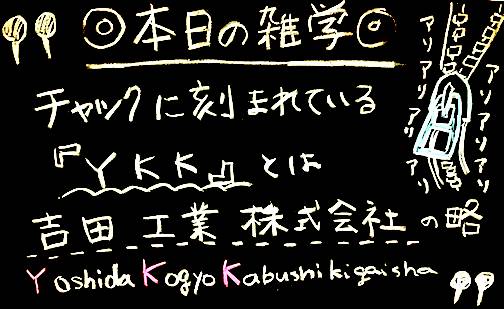 ◎本日の雑学◎
チャックに刻まれている
『YKK』とは
吉田工業株式会社の略
Yoshida Kogyo Kabushikigaisha
アリアリアリアリ
アリアリアリアリ